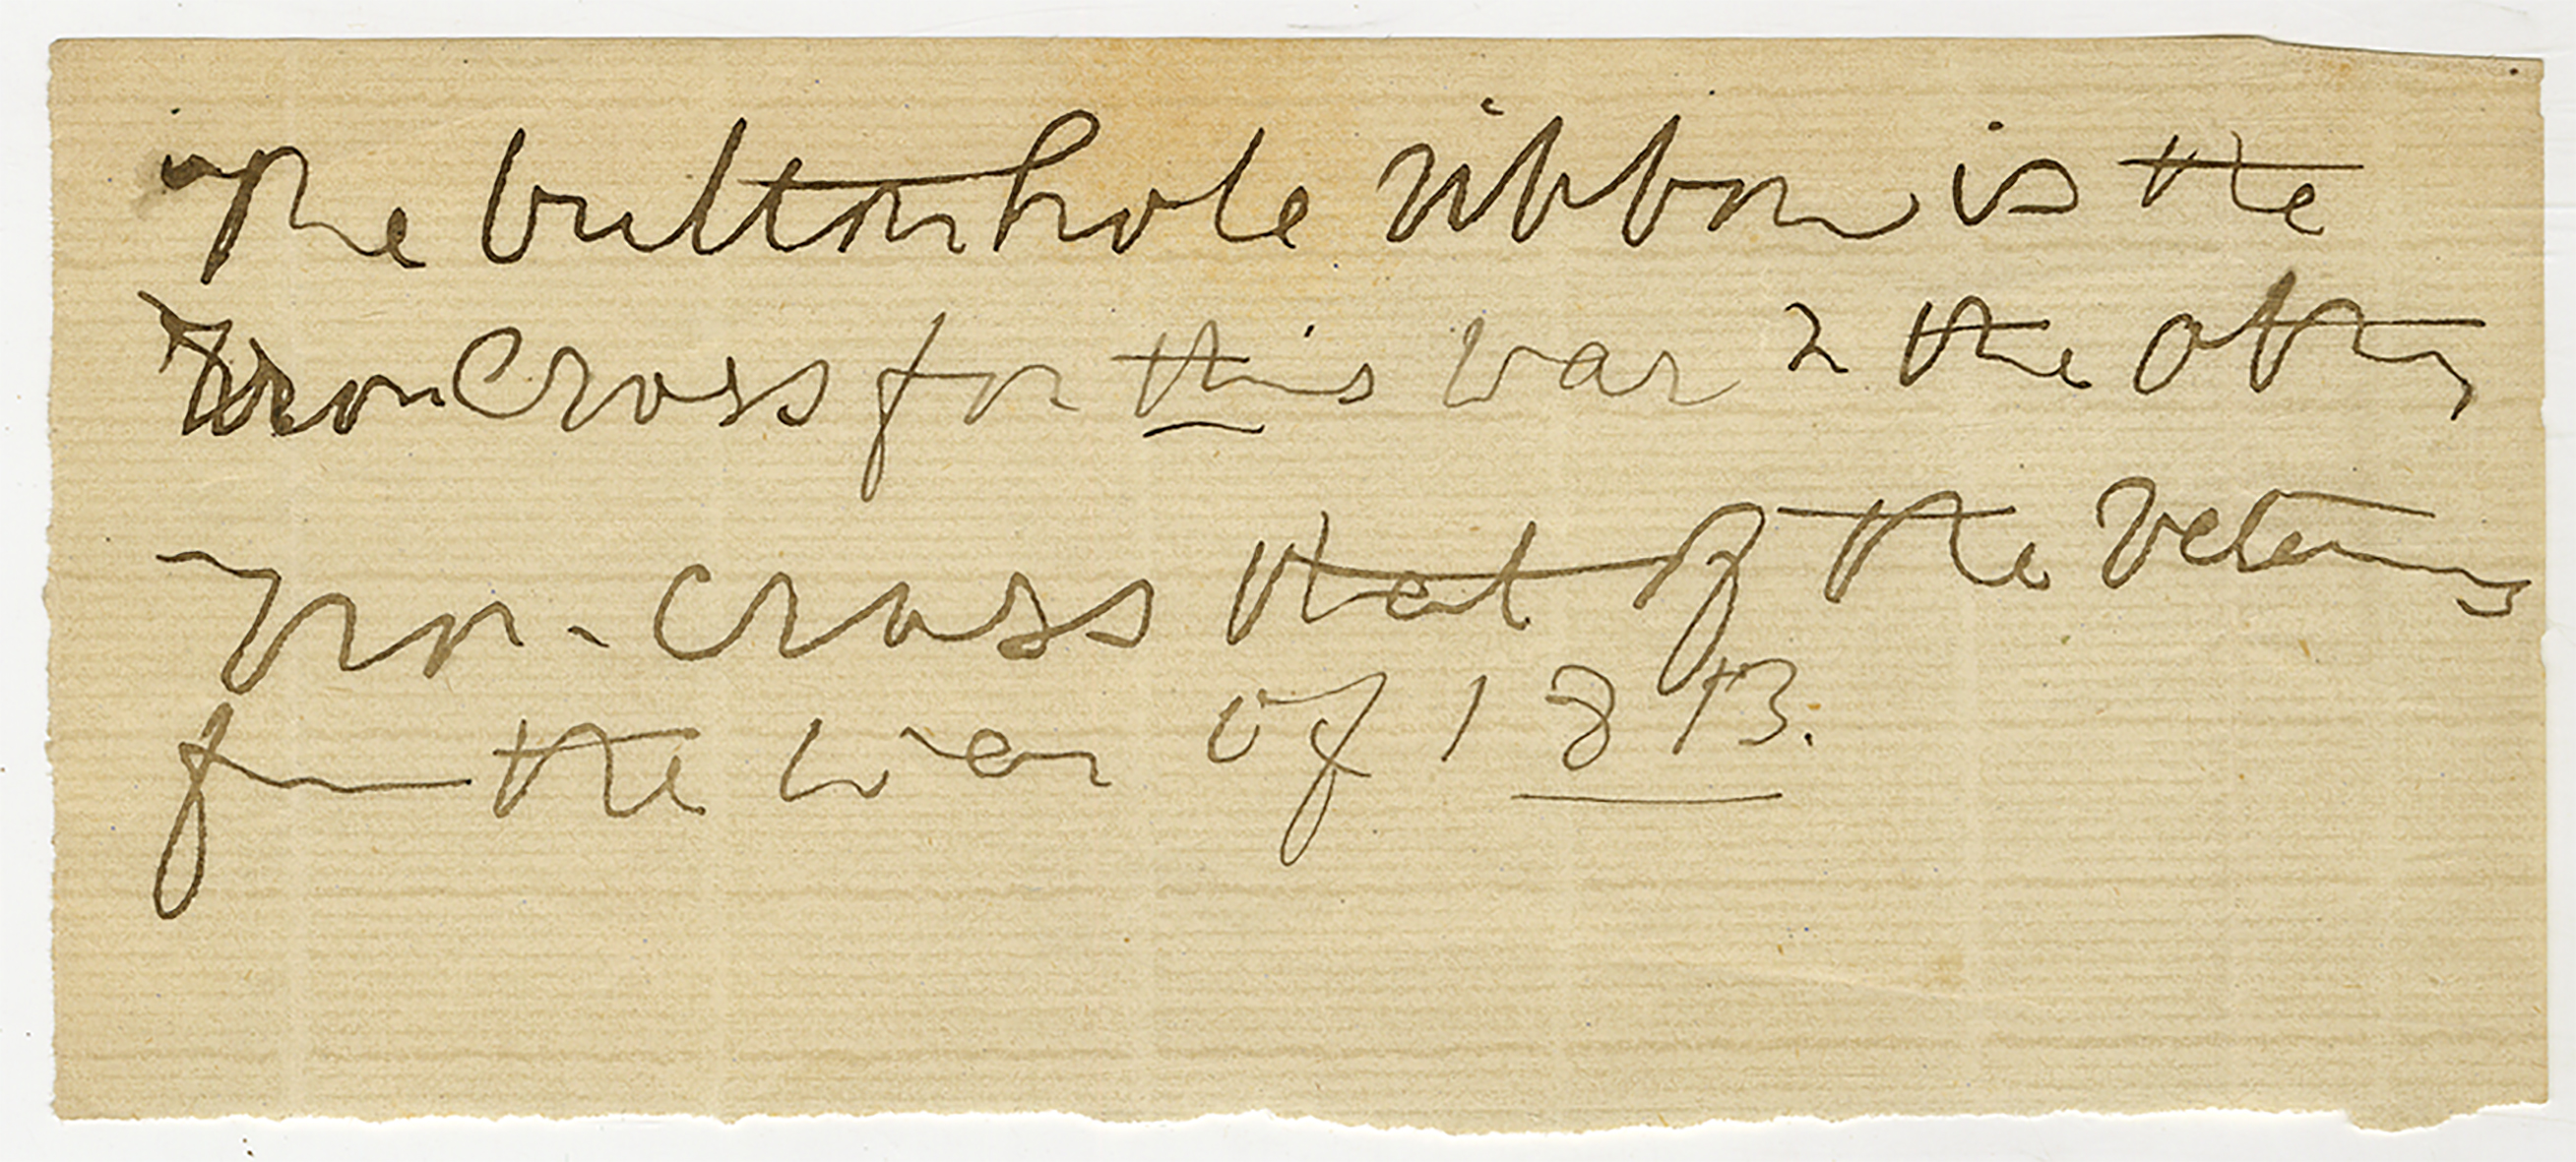 The buttonhole ribbon is the
Iron Cross for this war & the other
Iron-Cross that of the veterans
from the war of 1813.